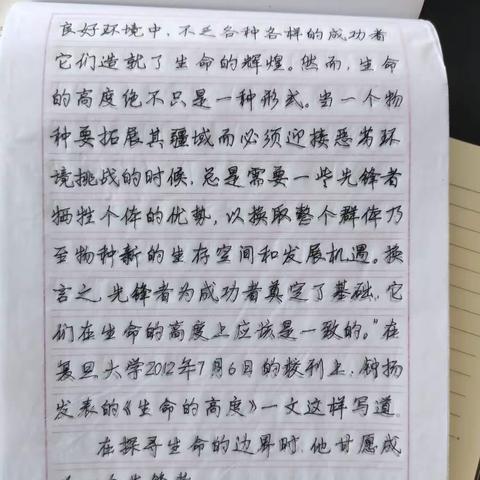 良好环境中,不乏各种各样的成功者
它们造就了生命的辉煌。然而,生命
的高度绝不只是一种形式。当一个物
种要拓展其疆域而必须迎接恶劣环
境挑战的时候,总是需要一些先锋者
牺牲个体的优势,以换取整个群体乃
至物种新的生存空间和发展机遇。换
言之,先锋者为成功者奠定了基础,它
们在生命的高度上应该是一致的。”在
复旦大学2012年7月6日的校刊上,钟扬
发表的《生命的高度》一文这样写道。
在探寻生命的边界时,他甘愿成